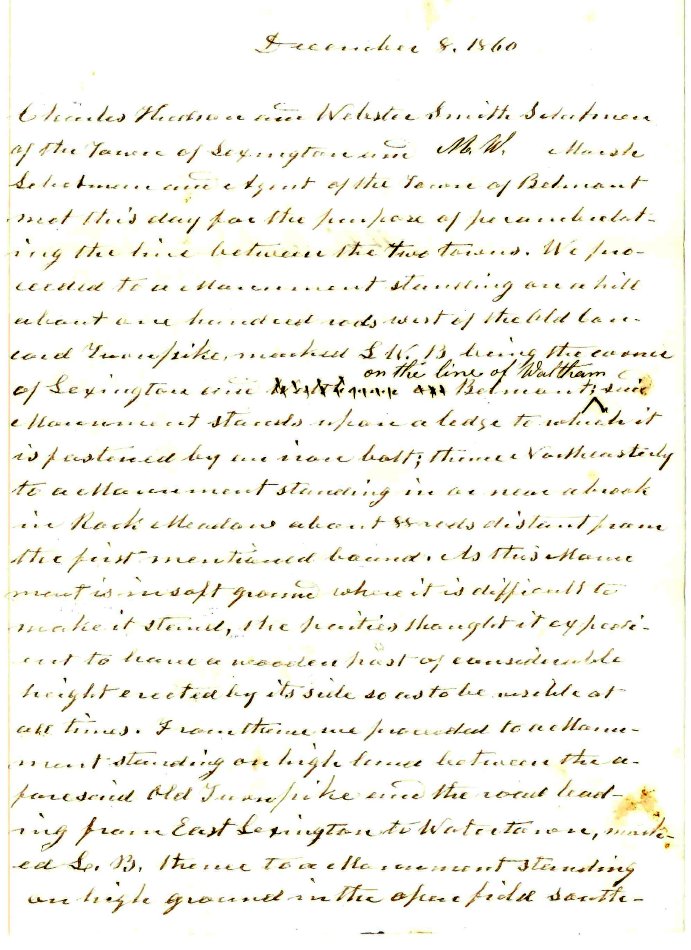 December 8. 1860
Charles Hudson and Webster Smith Selectmen
of the Town of Lexington and M. W. Marsh
Selectman and Agent of the Town of Belmont
met this day for the purpose of perambulat-
ing the line between the two towns. We pro-
ceeded to a Monument standing on a hill
about one hundred rods west of the Old Con-
cord Turnpike, marked L W. B, being the corner
on the line of Waltham
of Lexington and Belmont; said
Monument stands upon a ledge to which it
is fastened by an iron bolt; thence Northeasterly
to a Monument standing in or near a brook
in Rock Meadow about 88 rods distant from
the first mentioned bound. As this Monu
ment is in soft ground where it is difficult to
make it stand, the parties thought it expedi-
ent to have a wooden post of considerable
height erected by its side so as to be visible at
all times. From thence we proceeded to a Monu-
ment standing on high land between the a-
foresaid Old Turnpike and the road lead-
ing from East Lexington to Watertown, mark-
ed L. B. thence to a Monument standing
on high ground in the open field south-